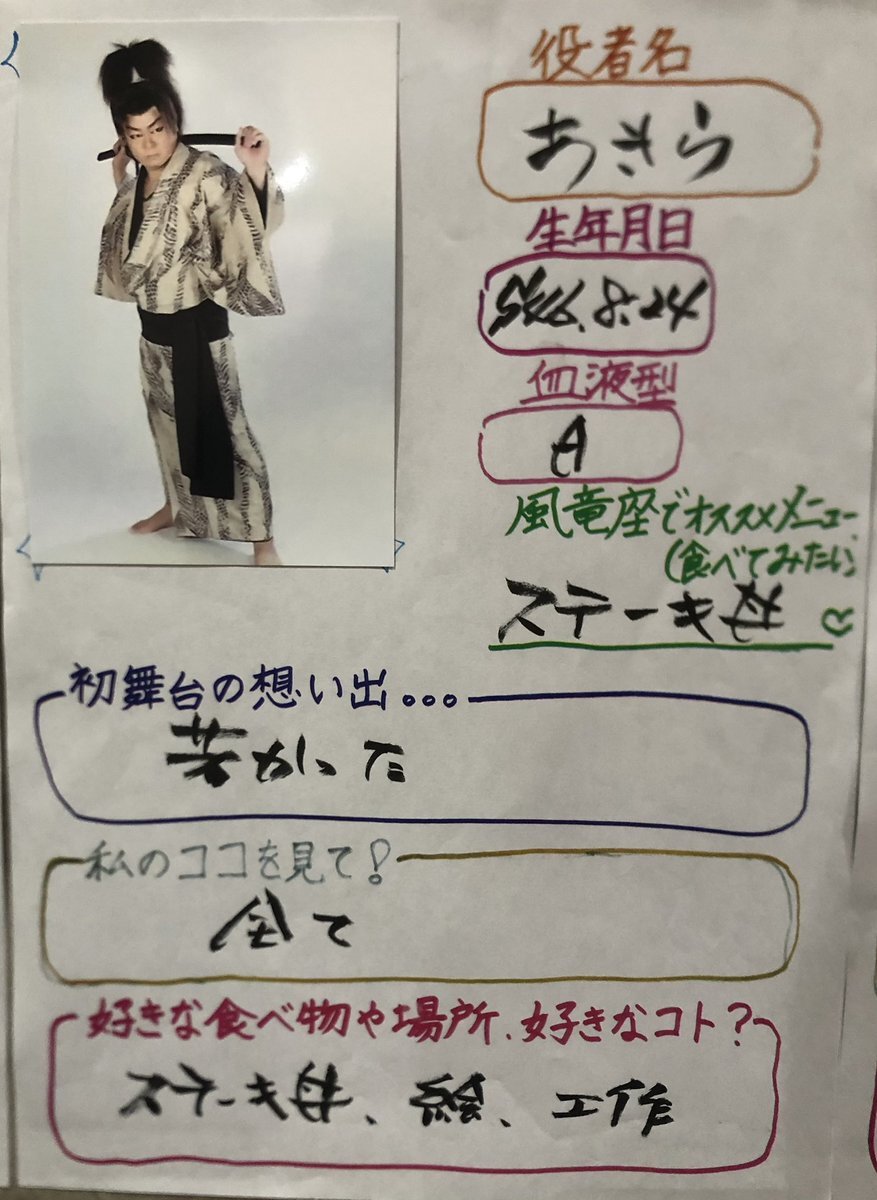 役者名
あきら
生年月日
S66.8.24
血液型
A
風竜座でオススメメニュー
(食べてみたい)
ステーキ丼
初舞台の想い出...
若かった
私のココを見て!
全て
好きな食べ物や場所、好きなコト?
ステーキ丼、絵、工作